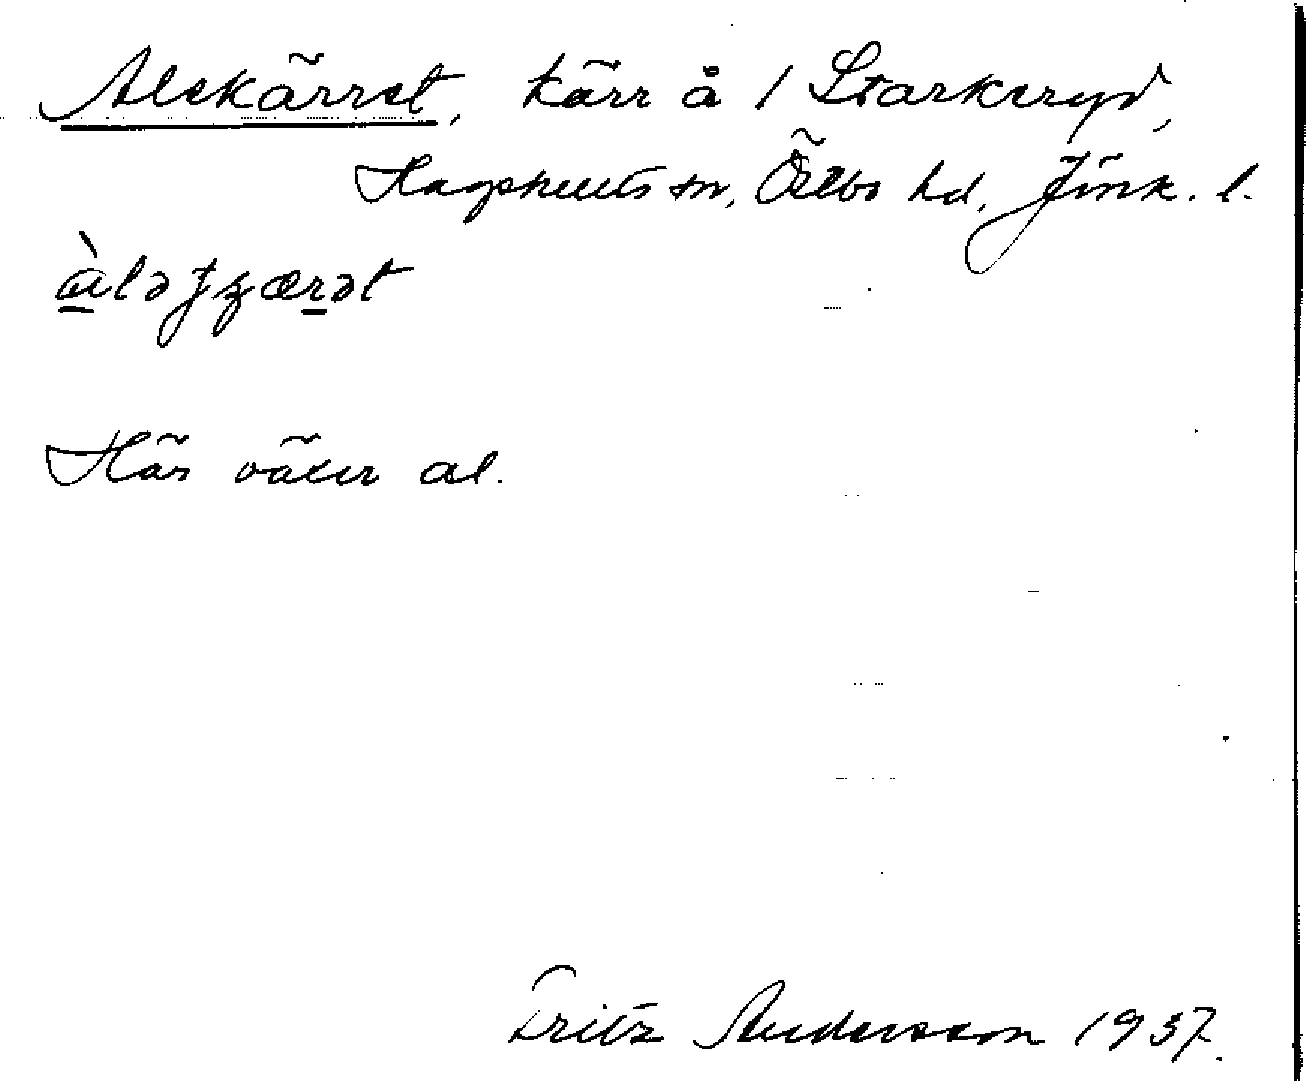 Alekärret, kärr å 1 Starkeryd,
Hagshults sn, Östbo hd, Jönk. l.
àləʃʒærət
Här växer al.
Fritz Andersson 1937.